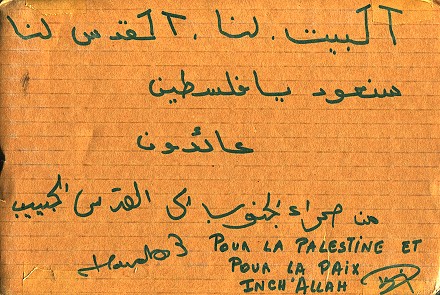 البيت . لنا . القدس لنا
سنعود يا فلسطين
عائدون
من صحراء الجنوب الى القدس الحبيب
POUR LA PALESTINE ET
POUR LA PAIX
INCH'ALLAH